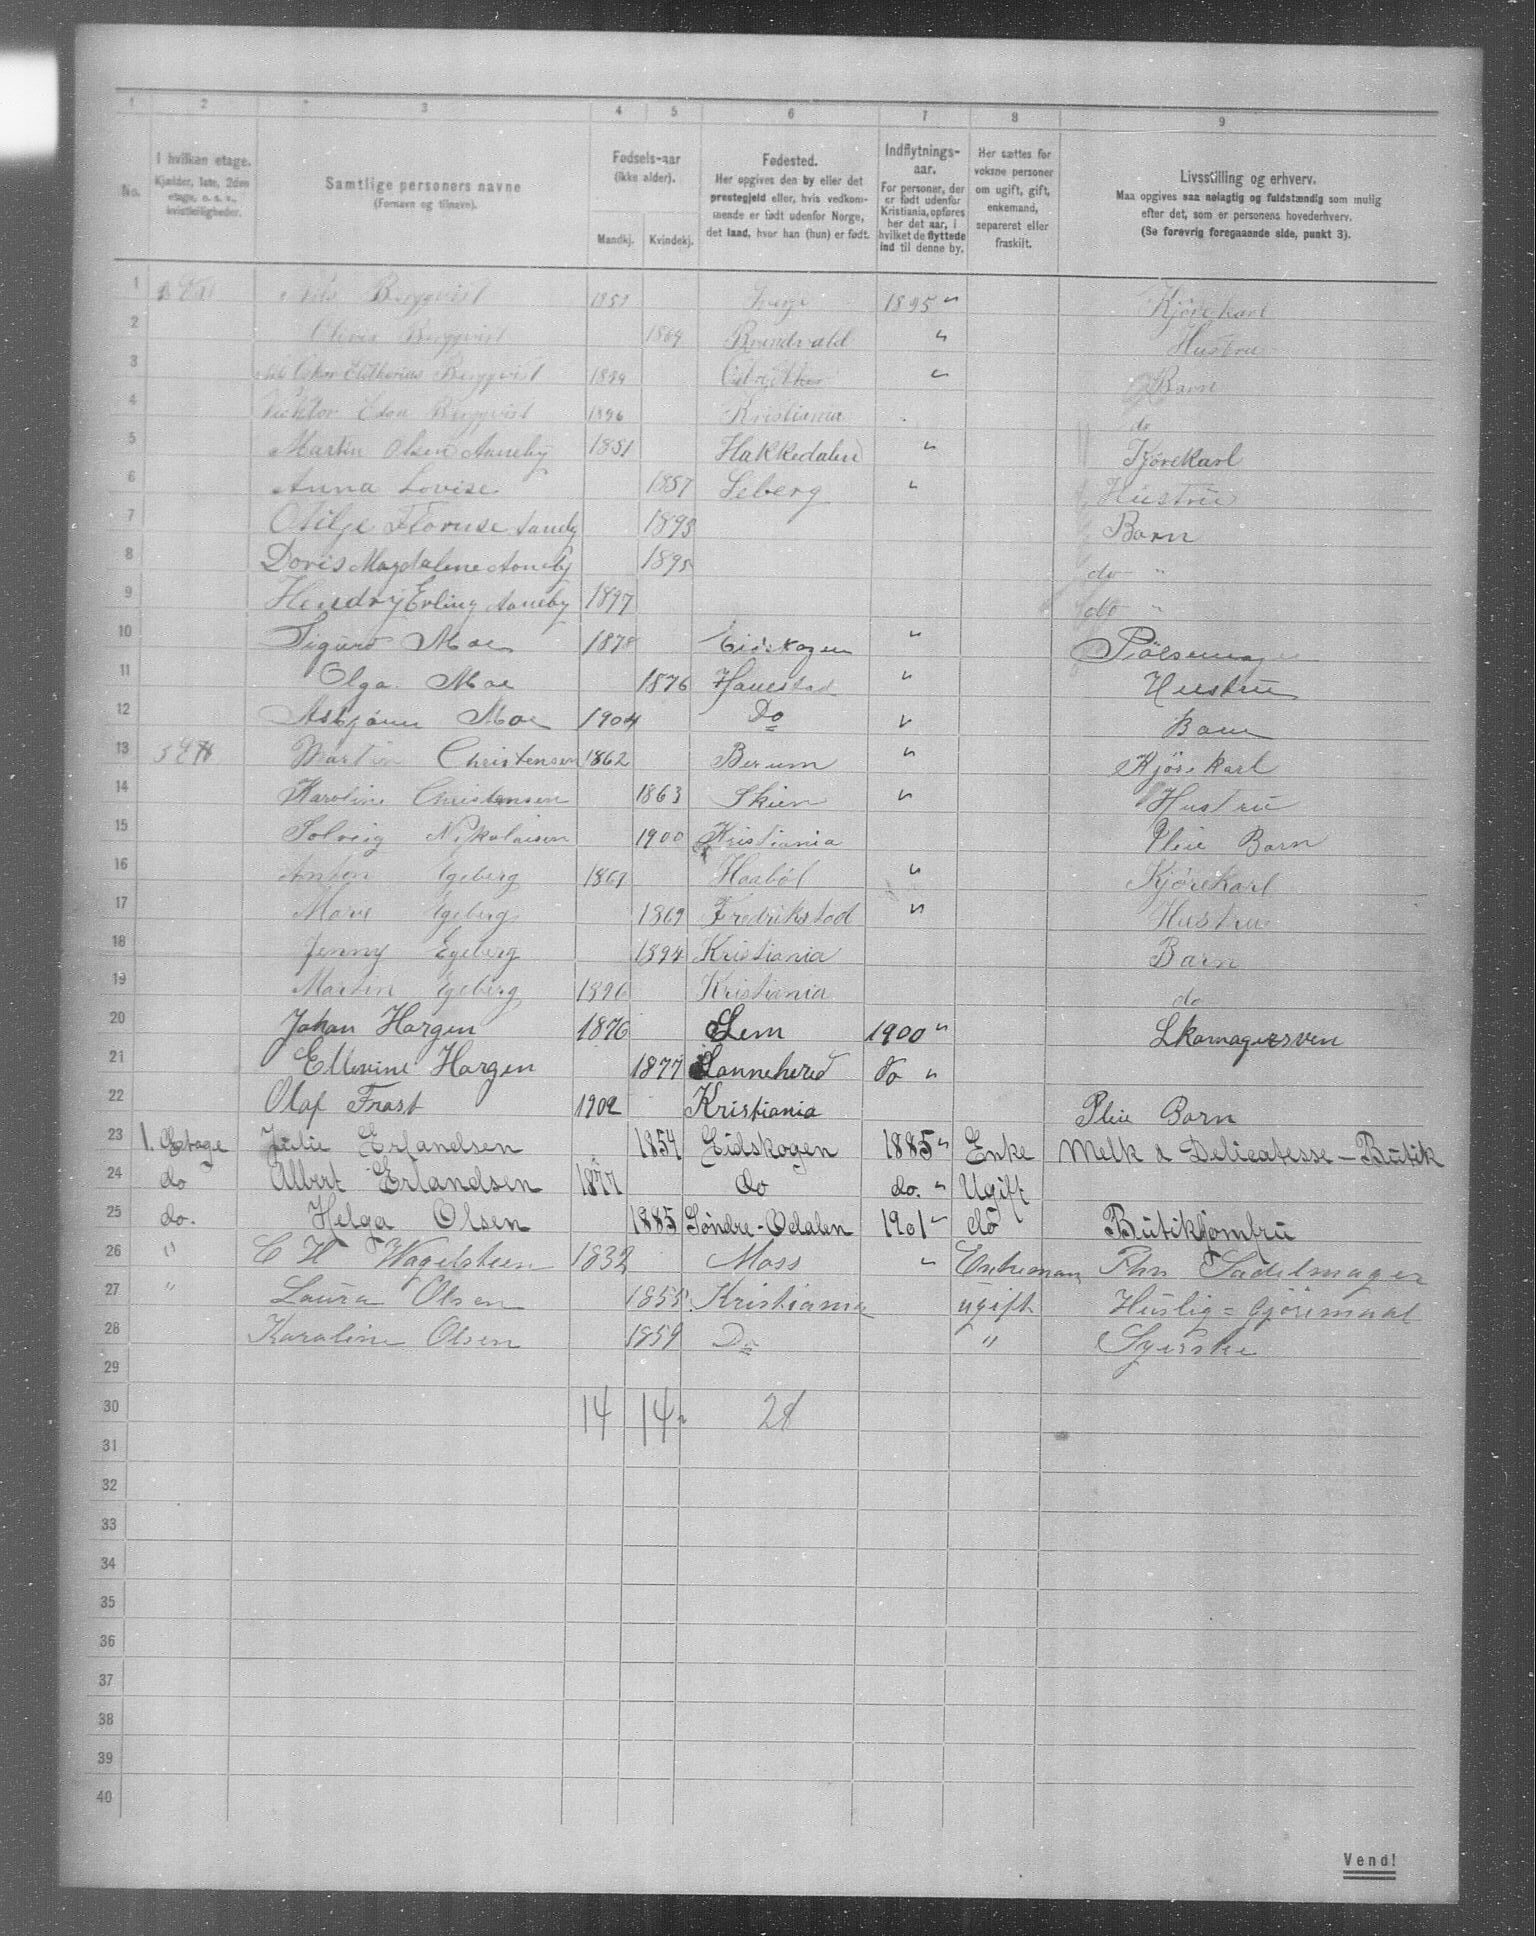 1 2 3 4 5 6 7 8 9
No.
I hvilken etage.
Kjælder, 1ste, 2den
etage, o. s. v.,
kvistleiligheder.
Samtlige personers navne
(Fornavn og tilnavn).
Fødsels-aar
(ikke alder).
Mandkj. Kvindekj.
Fødested.
Her opgives den by eller det
prestegjeld eller, hvis vedkom-
mende er født udenfor Norge,
det land, hvor han (hun) er født.
Indflytnings-
aar.
For personer, der
er født udenfor
Kristiania, opføres
her det aar, i
hvilket de flyttede
ind til denne by.
Her sættes for
voksne personer
om ugift, gift,
enkemand,
separeret eller
fraskilt.
Livsstilling og erhverv.
Maa opgives saa nøiagtig og fuldstændig som mulig
efter det, som er personens hovederhverv.
(Se forøvrig foregaaende side, punkt 3).
1 Nils Bergqvist 1895 " Kjørekarl
2 Bergqvist 1864 " Hustru
3 Oskar Bergqvist " Barn
4 Bergqvist 1896 Kristiania do
5 Martin Olsen Aaneby 1851 Hakkedalen " Kjørekarl
6 Anna Lovise 1857 " Hustru
7 Otilje Aaneby 1893 Barn
8 Doris Magdalene Aaneby 1895 do "
9 Hendry Erling Aaneby 1897 do "
10 Sigurd Moe 1878 Eidskogen "
11 Olga Moe 1876 " Hustru
12 Asbjørn Moe 1904 Do " Barn
13 3 Et Martin Christensen 1862 Berum " Kjørekarl
14 Karoline Christensen 1863 Skien " Hustru
15 Solveig Nikolaisen 1900 Kristiania Pleie Barn
16 Anton Egeberg 1861 Haabøl " Kjørekarl
17 Marie Egeberg 1869 Fredrikstad " Hustru
18 Jenny Egeberg 1894 Kristiania Barn
19 Martin Egeberg 1896 Kristiania do
20 Johan Horgen 1876 Lem 1900 " Skomagersven
21 Ellevine Horgen 1877 Sannehered do "
22 Olaf Frost 1902 Kristiania Pleie Barn
23 1. Etage Julie Erlandsen 1854 Eidskogen 1885 " Enke Melk & Delicatesse - Butik
24 do Albert Erlandsen 1877 do do. " Ugift
25 do. Helga Olsen 1885 Søndre-Odalen 1901 " do Butikjomfru
26 " C H Wagelsteen 1832 Moss " Enkeman Sadelmager
27 " Laura Olsen 1855 Kristiania ugift Huslig = Gjøremaal
28 Karoline Olsen 1859 Do " Syerske
29
30 14 14 28
31
32
33
34
35
36
37
38
39
40
Vend!